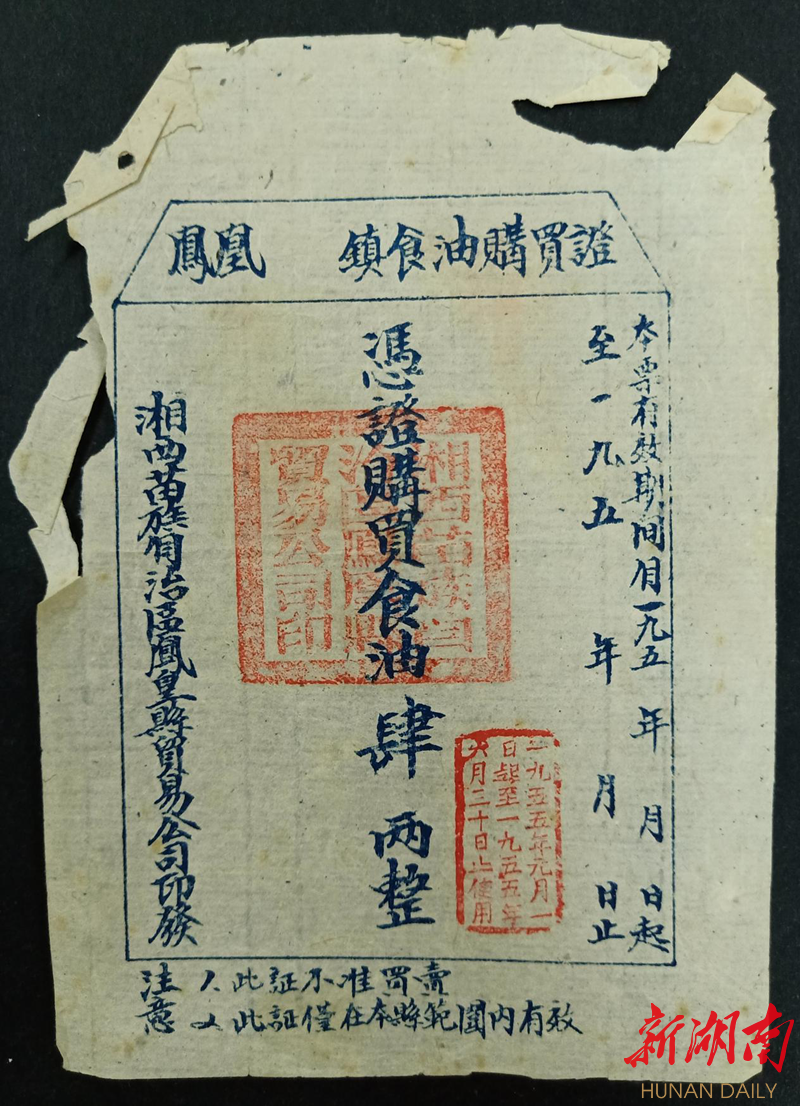 鳳凰 鎮食油購買證
本票有效期間自一九五 年 月 日起
至一九五 年 月 日止
憑證購買食油肆两整
湘西苗族自治區鳳皇縣貿易公司印發
湘西苗族自
治區鳳凰縣
貿易公司印
一九五五年元月一
日起至一九五五年
六月三十日止使用
注意
1、此証不准買賣
2、此証僅在本縣範圍内有效
新湖南
HUNAN DAILY